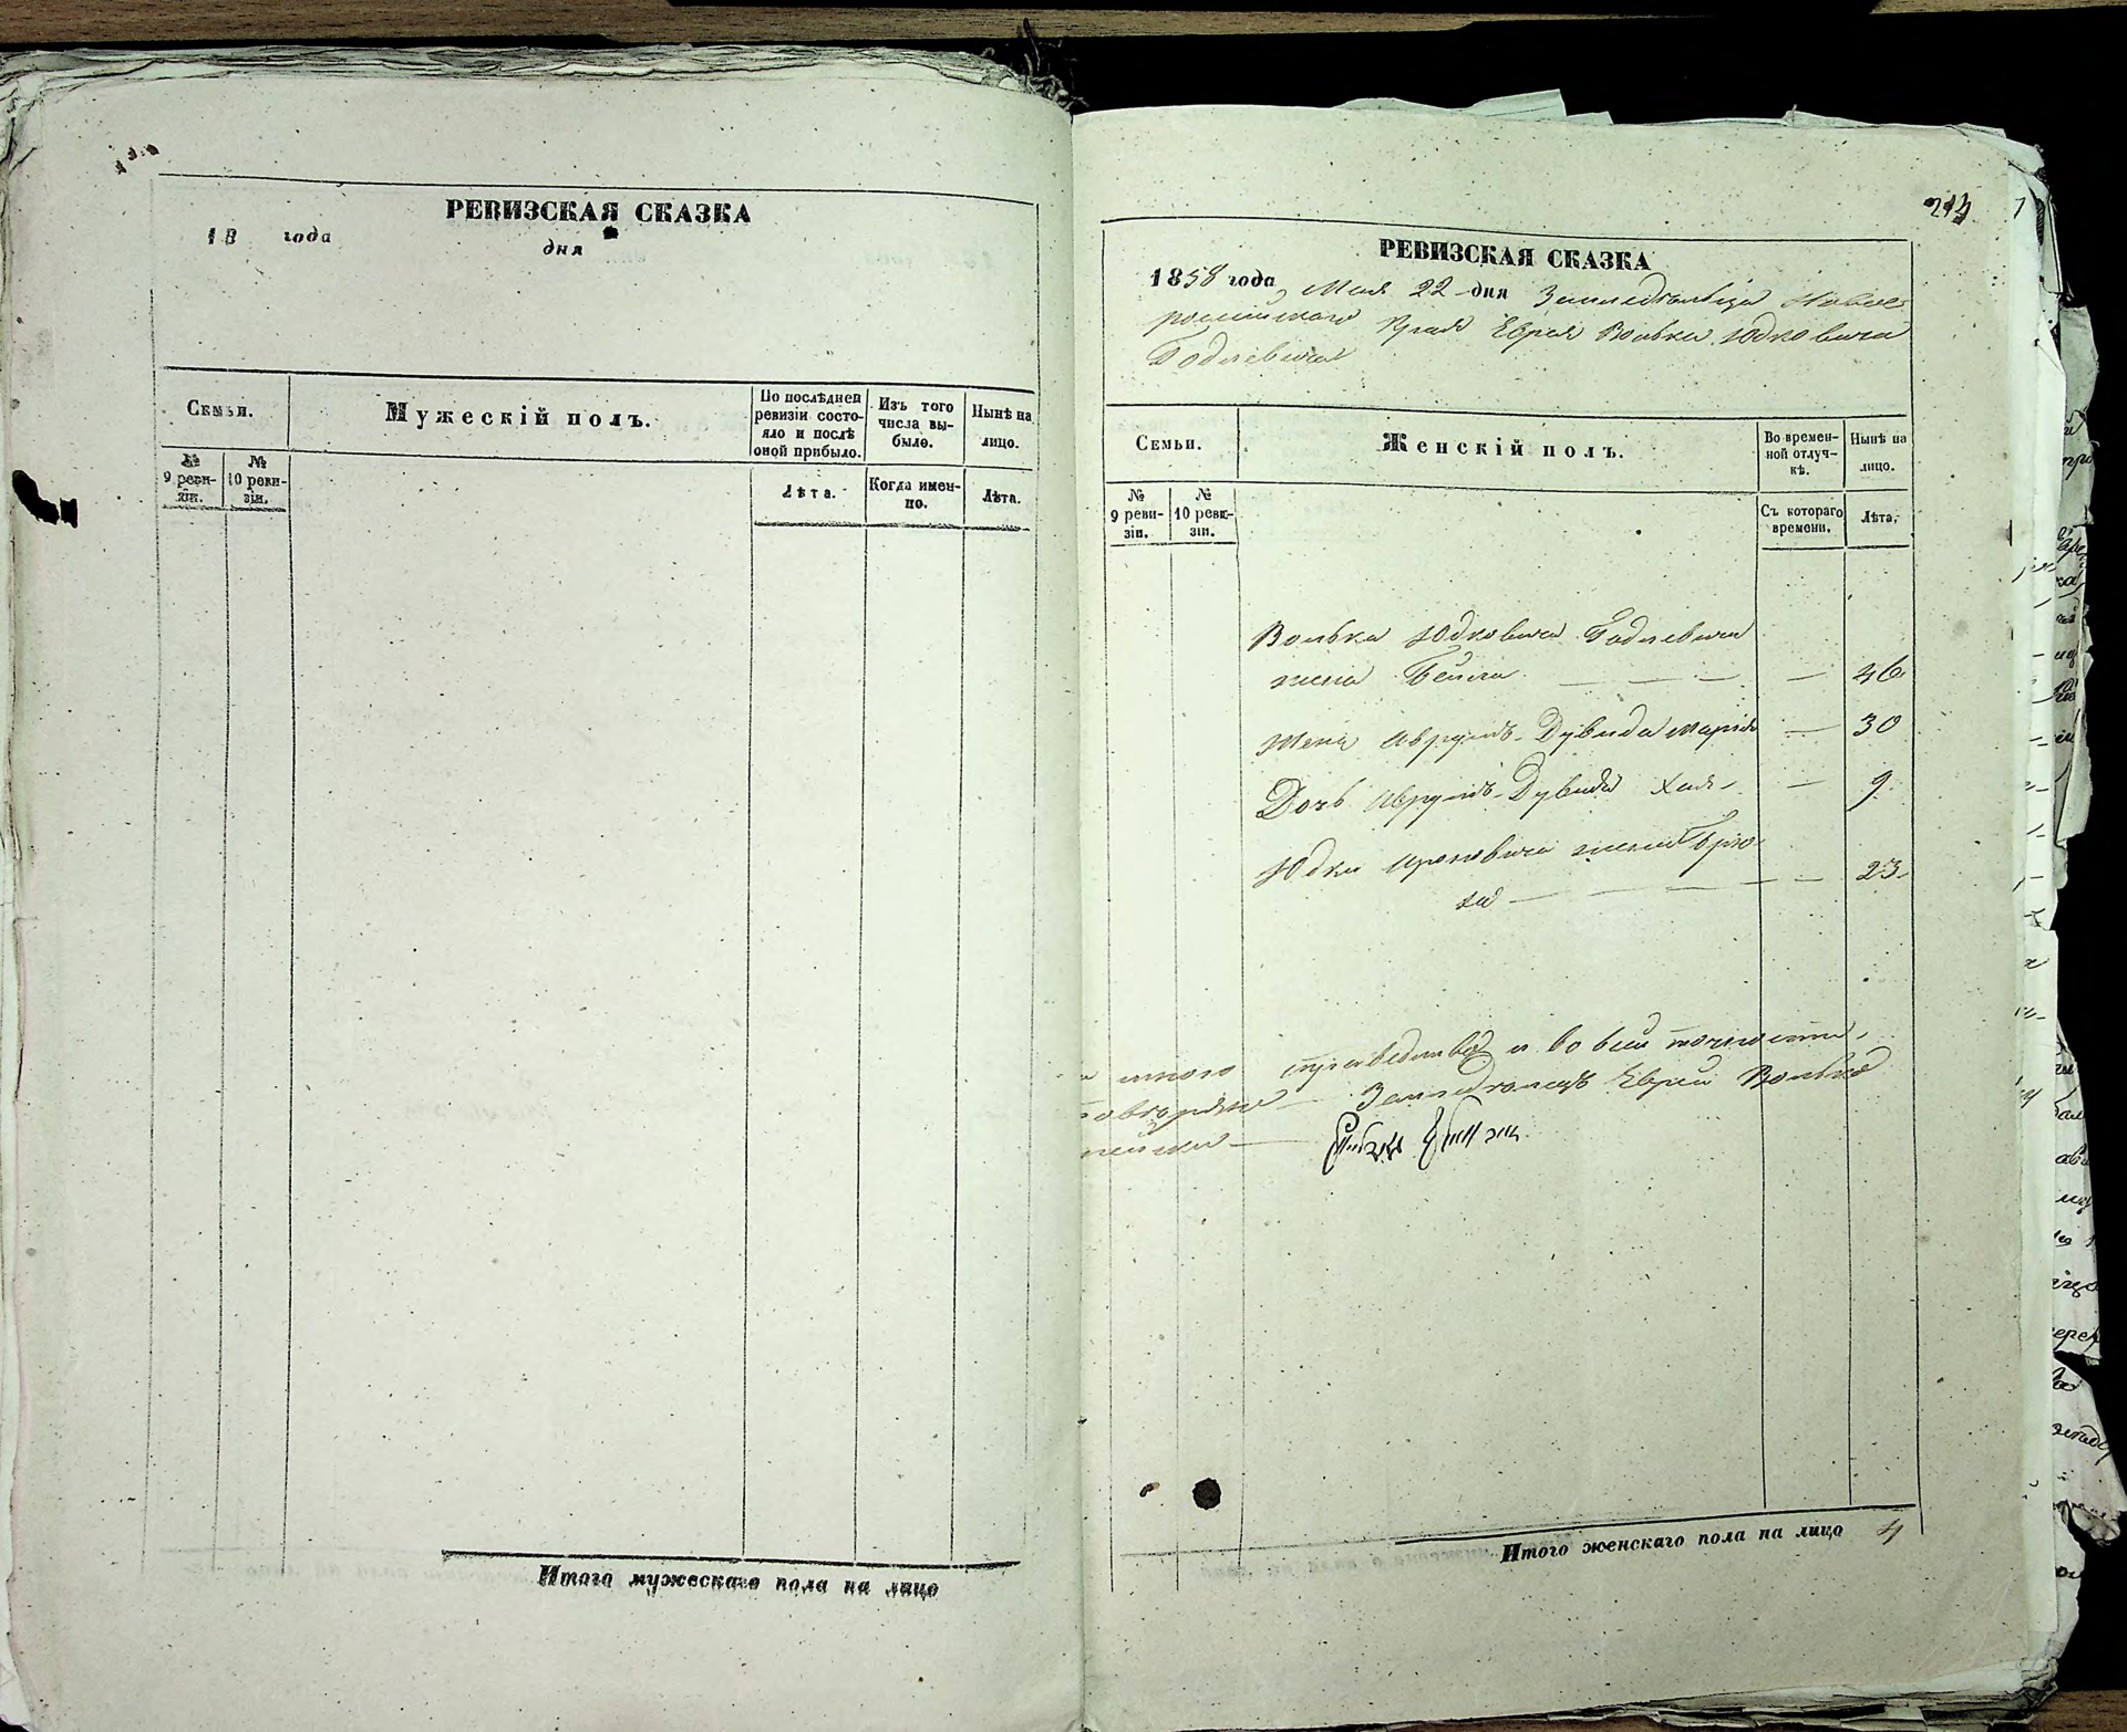 РЕВИЗСКАЯ СКАЗКА
18 года дня
Семьи.
Мужескій полъ.
По послѣдней ревизіи состо-
яло и послѣ
оной прибыло.
Изъ того
числа вы-
было.
Нынѣ на
лицо.
№
9 реви-
зіи.
№
10 реви-
зіи.
Лѣта.
Когда имен-
но.
Лѣта.
Итого мужескаго пола на лицо
РЕВИЗСКАЯ СКАЗКА
1858 года Мая 22 дня Земледѣльца Новоє-
россійскаго Края Еврея Волька Юдковича
Годлевича
Семьи.
Женскій полъ.
Во времен-
ной отлуч-
кѣ.
Нынѣ на
лицо.
№
9 реви-
зіи.
№
10 реви-
зіи.
Съ котораго
времени.
Лѣта.
Волька Юдковича Годлевича
жена Бейла — — — — 46
Жена Аврумъ-Дувида Марія — 30
Дочь Аврумъ-Дувида Хая — 9
Юдки жена Брю-
ха — — — — 23
справедливо и во всей точности,
Земледѣлецъ Еврей Волько
Итого женскаго пола на лицо 4